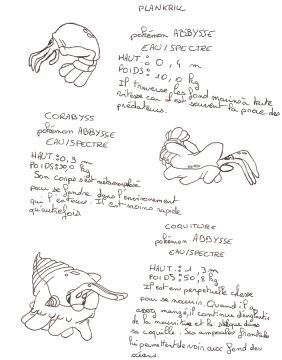 PLANKRILL
pokémon ABBYSSE
EAU/SPECTRE
HAUT.: 0, 4 m
POIDS: 10,0 kg
Il traverse les fond marins à toute
vitesse car il est souvent la proie des
prédateurs.
CORABYSS
pokémon ABBYSSE
EAU/SPECTRE
HAUT.: 0,3 m
POIDS: kg
Son corps s'est métamorphosé
pour se fondre dans l'environnement
qui l'entoure. Il est moins rapide
qu'autrefois.
COQUITURE
pokémon ABBYSSE
EAU/SPECTRE
HAUT.: 1, 3 m
POIDS: 50,8 kg
Il est en perpétuelle chasse
pour se nourrir. Quand il a
mangé, il continue d'engloutir
de la nourriture et la stocke dans
sa coquille. Ses ampoules frontales
lui permettent de voir aux fond des
océans.